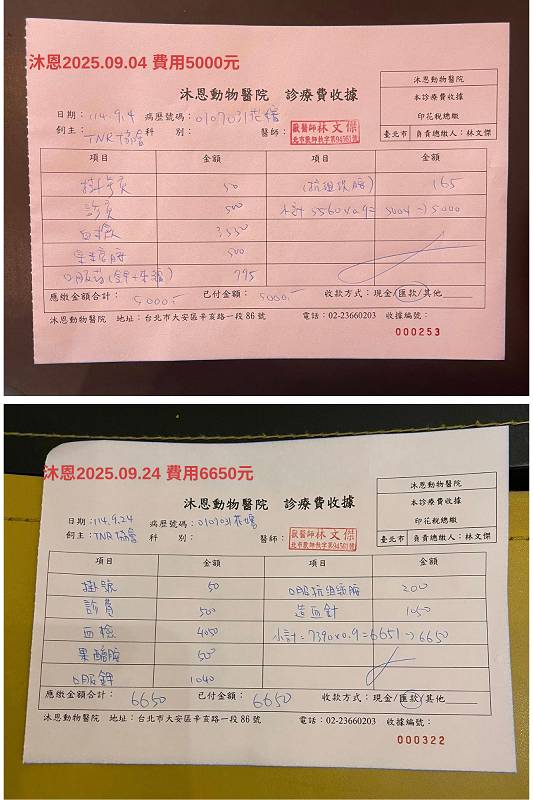 沐恩2025.09.04 費用5000元
沐恩動物醫院 診療費收據
沐恩動物醫院
本診療費收據
印花稅總繳
臺北市 負責總繳人：林文傑
日期：114.9.4 病歷號碼：0107031花嬸
飼主：TNR協會 科 別： 醫師：
獸醫師林文傑
北市獸師執字第94561號
項目 金額 項目 金額
掛號費 50 (抗組織胺) 165
診費 500 小計 5560x0.9=5004→5000
血檢 3550
果糖胺 500
口服藥 795
應繳金額合計：5000.- 已付金額：5000.- 收款方式：現金/匯款/其他
沐恩動物醫院 地址：台北市大安區辛亥路一段86號 電話：02-23660203 收據編號：
000253
沐恩2025.09.24 費用6650元
沐恩動物醫院 診療費收據
沐恩動物醫院
本診療費收據
印花稅總繳
臺北市 負責總繳人：林文傑
日期：114.9.24 病歷號碼：0107031花嬸
飼主：TNR協會 科 別： 醫師：
獸醫師林文傑
北市獸師執字第94561號
項目 金額 項目 金額
掛號 50 口服抗組織胺 200
診費 500 造血針 1050
血檢 4050 小計=7390x0.9=6651→6650
果醣胺 500
口服鋅 1040
應繳金額合計：6650 已付金額：6650 收款方式：現金/匯款/其他
沐恩動物醫院 地址：台北市大安區辛亥路一段86號 電話：02-23660203 收據編號：
000322